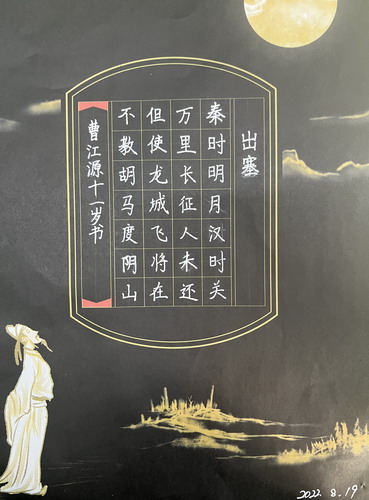 出塞
秦时明月汉时关
万里长征人未还
但使龙城飞将在
不教胡马度阴山
曹江源十一岁书
2022. 8. 19